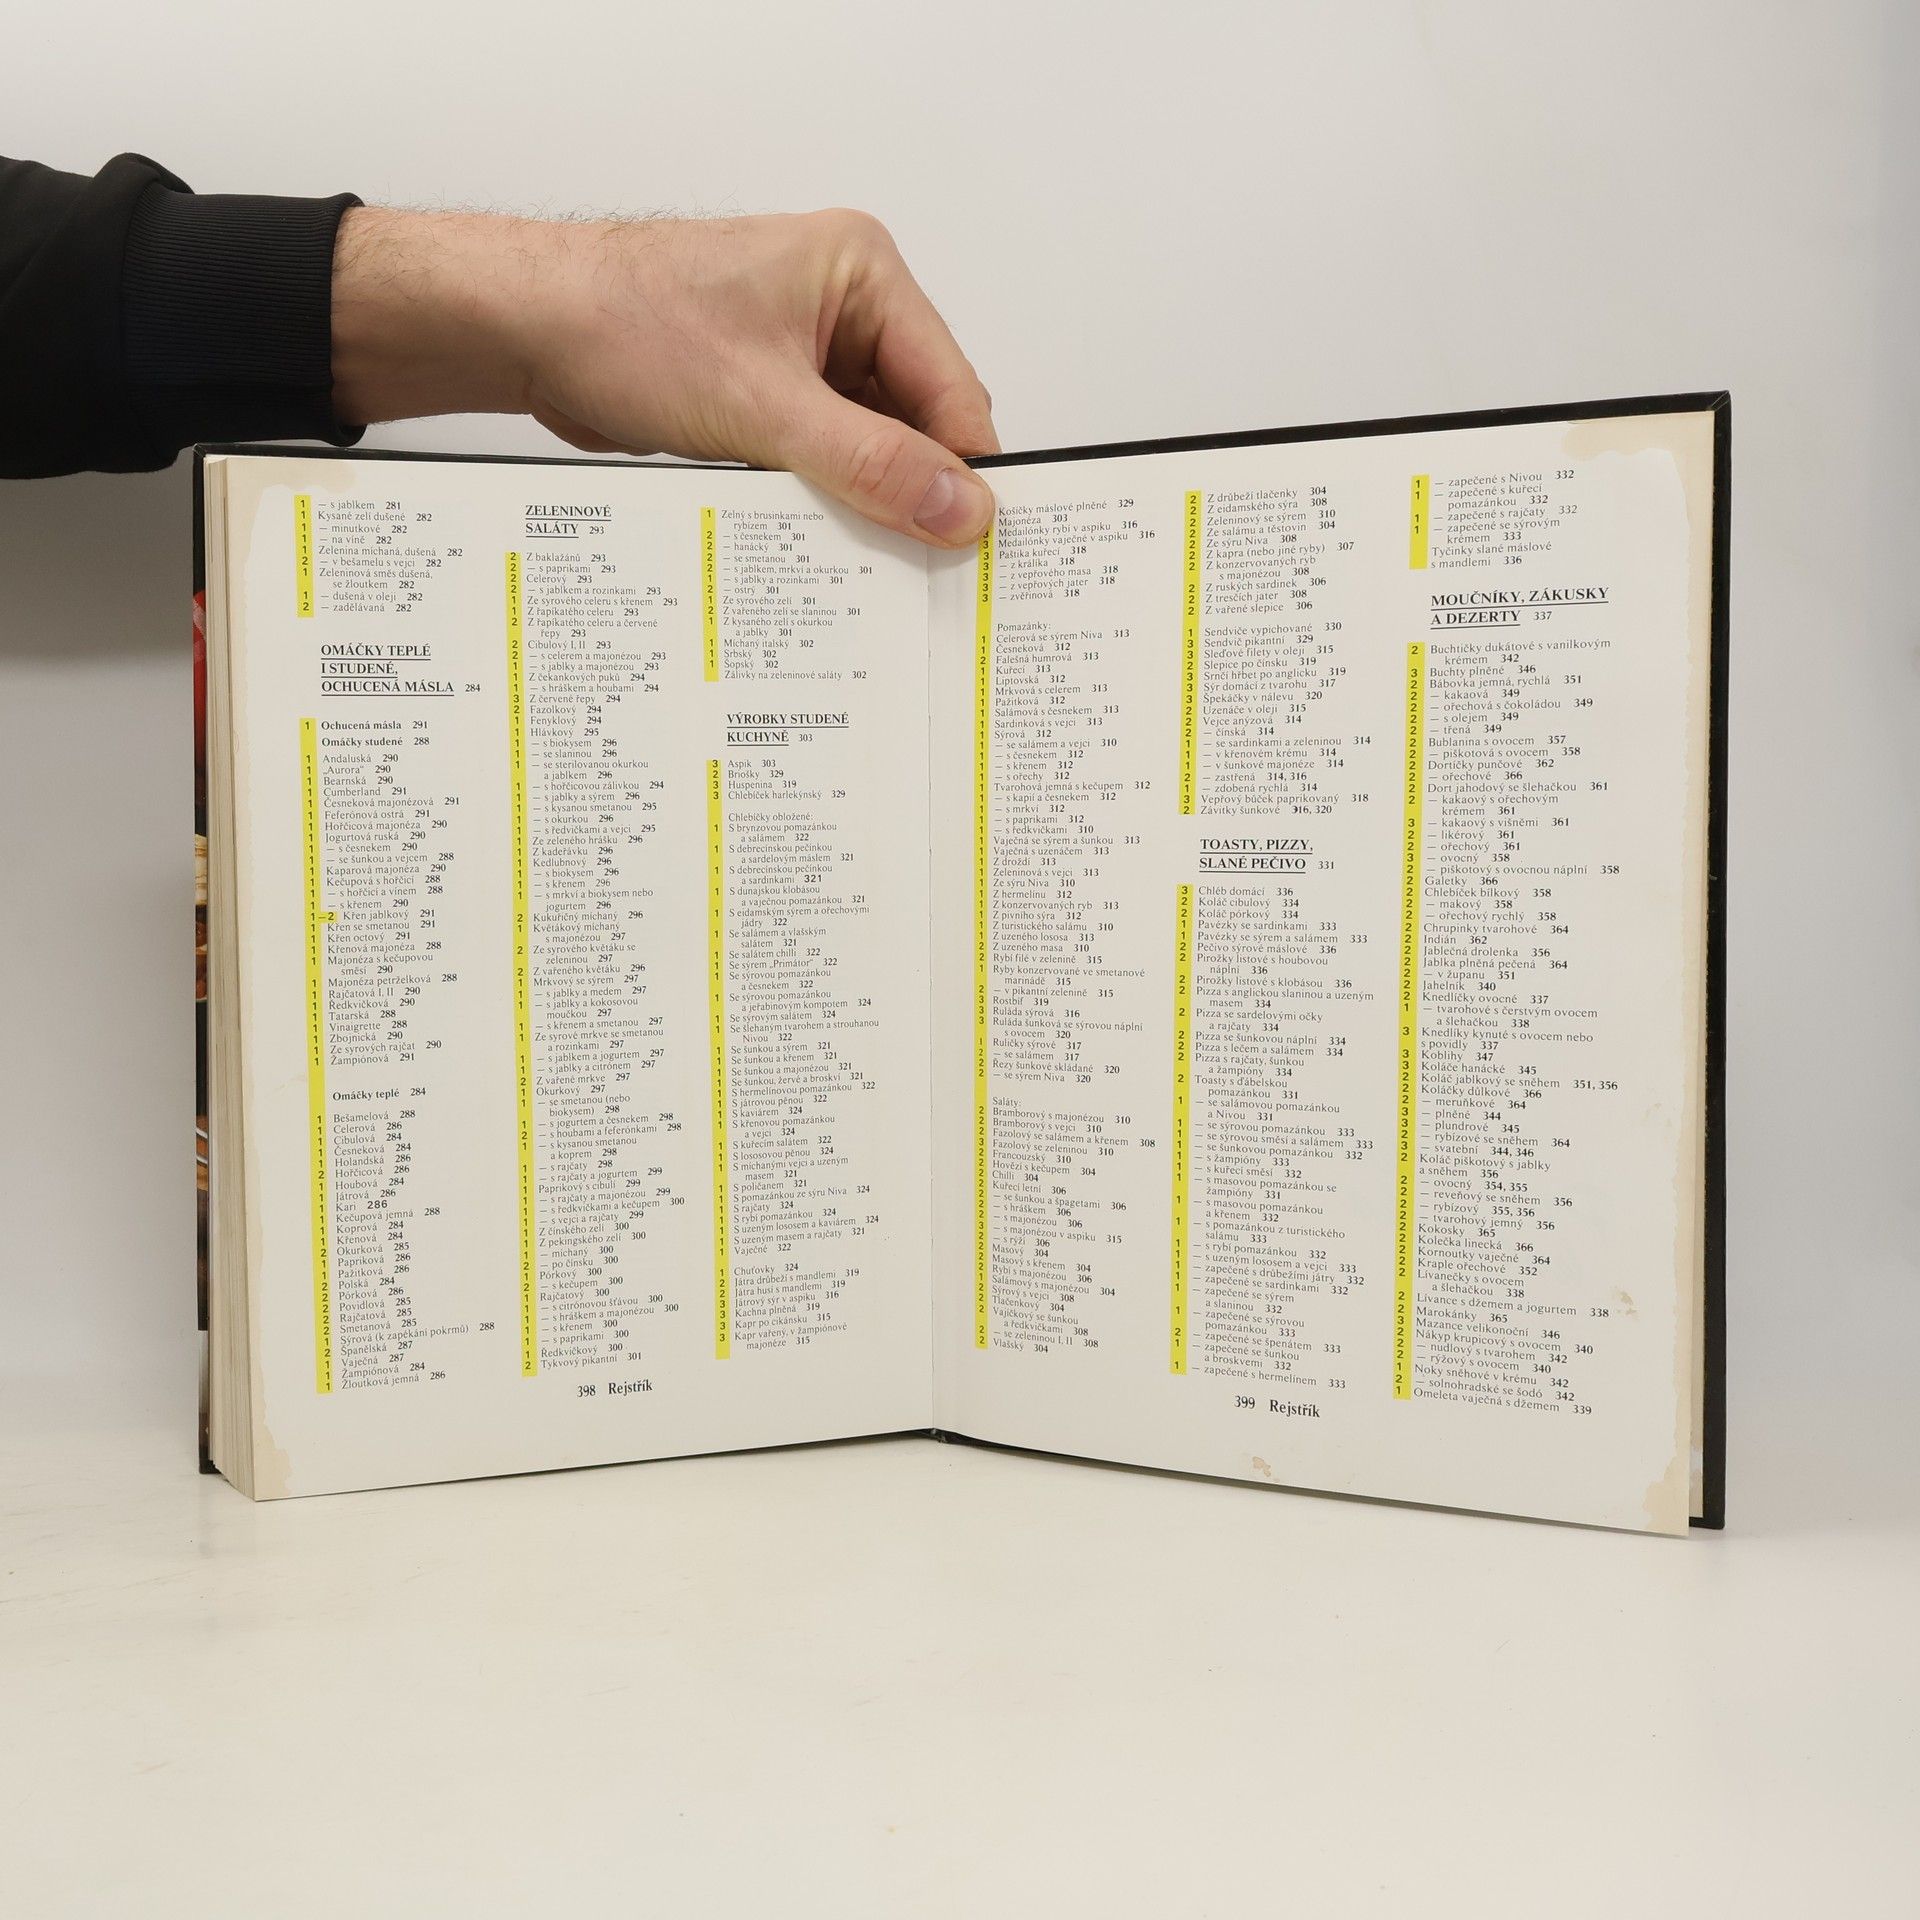 1 — s jablkem 281
1 Kysané zelí dušené 282
1 — minutkové 282
1 — na víně 282
1 Zelenina míchaná, dušená 282
2 — v bešamelu s vejci 282
1 Zeleninová směs dušená,
se žloutkem 282
1 — dušená v oleji 282
2 — zadělávaná 282
OMÁČKY TEPLÉ
I STUDENÉ,
OCHUCENÁ MÁSLA 284
1 Ochucená másla 291
Omáčky studené 288
1 Andaluská 290
1 „Aurora" 290
1 Bearnská 290
1 Cumberland 291
1 Česneková majonézová 291
1 Feferónová ostrá 291
1 Hořčicová majonéza 290
1 Jogurtová ruská 290
1 — s česnekem 290
1 — se šunkou a vejcem 288
1 Kaparová majonéza 290
1 Kečupová s hořčicí 288
1 — s hořčicí a vínem 288
1 — s křenem 290
1—2 Křen jablkový 291
1 Křen se smetanou 291
1 Křen octový 291
1 Křenová majonéza 288
1 Majonéza s kečupovou
směsí 290
1 Majonéza petrželková 288
1 Rajčatová I, II 290
1 Ředkvičková 290
1 Tatarská 288
1 Vinaigrette 288
1 Zbojnická 290
1 Ze syrových rajčat 290
1 Žampiónová 291
Omáčky teplé 284
1 Bešamelová 288
1 Celerová 286
1 Cibulová 284
1 Česneková 284
1 Holandská 286
2 Hořčicová 286
1 Houbová 284
1 Játrová 286
1 Kari 286
1 Kečupová jemná 288
1 Koprová 284
1 Křenová 284
2 Okurková 285
1 Papriková 286
1 Pažitková 286
2 Polská 284
1 Pórková 286
2 Povidlová 285
2 Rajčatová 285
2 Smetanová 285
1 Sýrová (k zapékání pokrmů) 288
2 Španělská 287
1 Vaječná 287
1 Žampiónová 284
1 Žloutková jemná 286
ZELENINOVÉ
SALÁTY 293
2 Z baklažánů 293
2 — s paprikami 293
2 Celerový 293
2 — s jablkem a rozinkami 293
1 Ze syrového celeru s křenem 293
1 Z řapíkatého celeru 293
2 Z řapíkatého celeru a červené
řepy 293
2 Cibulový I, II 293
2 — s celerem a majonézou 293
1 — s jablky a majonézou 293
1 Z čekankových puků 294
1 — s hráškem a houbami 294
3 Z červené řepy 294
2 Fazolkový 294
1 Fenyklový 294
1 Hlávkový 295
1 — s biokysem 296
1 — se slaninou 296
1 — se sterilovanou okurkou
a jablkem 296
1 — s hořčicovou zálivkou 294
1 — s jablky a sýrem 296
1 — s kysanou smetanou 295
1 — s okurkou 296
1 — s ředvičkami a vejci 295
1 Ze zeleného hrášku 296
1 Z kadeřávku 296
1 Kedlubnový 296
1 — s biokysem 296
1 — s křenem 296
1 — s mrkví a biokysem nebo
jogurtem 296
2 Kukuřičný míchaný 296
1 Květákový míchaný
s majonézou 297
2 Ze syrového květáku se
zeleninou 297
2 Z vařeného květáku 296
1 Mrkvový se sýrem 297
1 — s jablky a medem 297
1 — s jablky a kokosovou
moučkou 297
1 — s křenem a smetanou 297
1 Ze syrové mrkve se smetanou
a rozinkami 297
1 — s jablkem a jogurtem 297
1 — s jablky a citrónem 297
2 Z vařené mrkve 297
1 Okurkový 297
1 — se smetanou (nebo
biokysem) 298
1 — s jogurtem a česnekem 298
2 — s houbami a feferónkami 298
1 — s kysanou smetanou
a koprem 298
1 — s rajčaty 298
1 — s rajčaty a jogurtem 299
1 Paprikový s cibulí 299
1 — s rajčaty a majonézou 299
1 — s ředkvičkami a kečupem 300
1 — s vejci a rajčaty 299
1 Z čínského zelí 300
1 Z pekingského zelí 300
1 — míchaný 300
2 — po čínsku 300
1 Pórkový 300
2 — s kečupem 300
1 Rajčatový 300
1 — s citrónovou šťávou 300
1 — s hráškem a majonézou 300
1 — s křenem 300
1 — s paprikami 300
1 Ředkvičkový 300
2 Tykvový pikantní 301
1 Zelný s brusinkami nebo
rybízem 301
2 — s česnekem 301
2 — hanácký 301
2 — se smetanou 301
2 — s jablkem, mrkví a okurkou 301
1 — s jablky a rozinkami 301
2 — ostrý 301
1 Ze syrového zelí 301
2 Z vařeného zelí se slaninou 301
1 Z kysaného zelí s okurkou
a jablky 301
1 Míchaný italský 302
1 Srbský 302
1 Šopský 302
Zálivky na zeleninové saláty 302
VÝROBKY STUDENÉ
KUCHYNĚ 303
3 Aspik 303
2 Briošky 329
3 Huspenina 319
3 Chlebíček harlekýnský 329
Chlebíčky obložené:
1 S brynzovou pomazánkou
a salámem 322
1 S debrecínskou pečínkou
a sardelovým máslem 321
1 S debrecínskou pečínkou
a sardinkami 321
1 S dunajskou klobásou
a vaječnou pomazánkou 321
1 S eidamským sýrem a ořechovými
jádry 322
1 Se salámem a vlašským
salátem 321
1 Se salátem chilli 322
1 Se sýrem „Primátor" 322
1 Se sýrovou pomazánkou
a česnekem 322
1 Se sýrovou pomazánkou
a jeřabinovým kompotem 324
1 Se sýrovým salátem 324
1 Se šlehaným tvarohem a strouhanou
Nivou 322
1 Se šunkou a sýrem 321
1 Se šunkou a křenem 321
1 Se šunkou a majonézou 321
1 Se šunkou, žervé a broskví 321
1 S hermelínovou pomazánkou 322
1 S játrovou pěnou 322
1 S kaviárem 324
1 S křenovou pomazánkou
a vejci 324
1 S kuřecím salátem 322
1 S lososovou pěnou 324
1 S míchanými vejci a uzeným
masem 321
1 S poličanem 321
1 S pomazánkou ze sýru Niva 324
1 S rajčaty 324
1 S rybí pomazánkou 324
1 S uzeným lososem a kaviárem 324
1 S uzeným masem a rajčaty 321
1 Vaječné 322
1 Chuťovky 324
2 Játra drůbeží s mandlemi 319
2 Játra husí s mandlemi 319
3 Játrový sýr v aspiku 316
3 Kachna plněná 319
3 Kapr po cikánsku 315
3 Kapr vařený, v žampiónové
majonéze 315
398 Rejstřík
Košíčky máslové plněné 329
Majonéza 303
3 Medailónky rybí v aspiku 316
3 Medailónky vaječné v aspiku 316
3 Paštika kuřecí 318
3 — z králíka 318
3 — z vepřového masa 318
3 — z vepřových jater 318
3 — zvěřinová 318
Pomazánky:
1 Celerová se sýrem Niva 313
1 Česneková 312
2 Falešná humrová 313
1 Kuřecí 313
1 Liptovská 312
1 Mrkvová s celerem 313
1 Pažitková 312
1 Salámová s česnekem 313
1 Sardinková s vejci 313
1 Sýrová 312
1 — se salámem a vejci 310
1 — s česnekem 312
1 — s křenem 312
1 — s ořechy 312
1 Tvarohová jemná s kečupem 312
1 — s kapií a česnekem 312
1 — s mrkví 312
1 — s paprikami 312
1 — s ředkvičkami 310
1 Vaječná se sýrem a šunkou 313
1 Vaječná s uzenáčem 313
1 Z droždí 313
1 Zeleninová s vejci 313
1 Ze sýru Niva 310
1 Z hermelínu 312
1 Z konzervovaných ryb 313
1 Z pivního sýra 312
1 Z turistického salámu 310
1 Z uzeného lososa 313
2 Z uzeného masa 310
2 Rybí filé v zelenině 315
1 Ryby konzervované ve smetanové
marinádě 315
2 — v pikantní zelenině 315
3 Rostbíf 319
3 Ruláda sýrová 316
3 Ruláda šunková se sýrovou náplní
s ovocem 320
1 Ruličky sýrové 317
2 — se salámem 317
2 Řezy šunkové skládané 320
2 — se sýrem Niva 320
Saláty:
2 Bramborový s majonézou 310
2 Bramborový s vejci 310
2 Fazolový se salámem a křenem 308
3 Fazolový se zeleninou 310
2 Francouzský 310
2 Hovězí s kečupem 304
2 Chilli 304
2 Kuřecí letní 306
2 — se šunkou a špagetami 306
2 — s hráškem 306
2 — s majonézou 306
3 — s majonézou v aspiku 315
2 — s rýží 306
2 Masový 304
2 Masový s křenem 304
2 Rybí s majonézou 306
1 Salámový s majonézou 304
2 Sýrový s vejci 308
2 Tlačenkový 304
2 Vajíčkový se šunkou
a ředkvičkami 308
2 — se zeleninou I, II 308
2 Vlašský 304
2 Z drůbeží tlačenky 304
2 Z eidamského sýra 308
2 Zeleninový se sýrem 310
2 Ze salámu a těstovin 304
2 Ze sýru Niva 308
2 Z kapra (nebo jiné ryby) 307
2 Z konzervovaných ryb
s majonézou 308
2 Z ruských sardinek 306
2 Z tresčích jater 308
2 Z vařené slepice 306
1 Sendviče vypichované 330
3 Sendvič pikantní 329
3 Sleďové filety v oleji 315
2 Slepice po čínsku 319
3 Srnčí hřbet po anglicku 319
3 Sýr domácí z tvarohu 317
3 Špekáčky v nálevu 320
2 Uzenáče v oleji 315
2 Vejce anýzová 314
2 — čínská 314
1 — se sardinkami a zeleninou 314
1 — v křenovém krému 314
1 — v šunkové majonéze 314
2 — zastřená 314, 316
1 — zdobená rychlá 314
3 Vepřový bůček paprikovaný 318
2 Závitky šunkové 316, 320
TOASTY, PIZZY,
SLANÉ PEČIVO 331
3 Chléb domácí 336
2 Koláč cibulový 334
2 Koláč pórkový 334
1 Pavézky se sardinkami 333
1 Pavézky se sýrem a salámem 333
2 Pečivo sýrové máslové 336
2 Pirožky listové s houbovou
náplní 336
2 Pirožky listové s klobásou 336
2 Pizza s anglickou slaninou a uzeným
masem 334
2 Pizza se sardelovými očky
a rajčaty 334
2 Pizza se šunkovou náplní 334
2 Pizza s lečem a salámem 334
2 Pizza s rajčaty, šunkou
a žampióny 334
2 Toasty s ďábelskou
pomazánkou 331
1 — se salámovou pomazánkou
a Nivou 331
1 — se sýrovou pomazánkou 333
1 — se sýrovou směsí a salámem 333
1 — se šunkovou pomazánkou 332
1 — s žampióny 333
1 — s kuřecí směsí 332
1 — s masovou pomazánkou se
žampióny 331
1 — s masovou pomazánkou
a křenem 332
1 — s pomazánkou z turistického
salámu 333
1 — s rybí pomazánkou 332
1 — s uzeným lososem a vejci 333
1 — zapečené s drůbežími játry 332
1 — zapečené se sardinkami 332
1 — zapečené se sýrem
a slaninou 332
1 — zapečené se sýrovou
pomazánkou 333
2 — zapečené se špenátem 333
1 — zapečené se šunkou
a broskvemi 332
1 — zapečené s hermelínem 333
1 — zapečené s Nivou 332
1 — zapečené s kuřecí
pomazánkou 332
1 — zapečené s rajčaty 332
1 — zapečené se sýrovým
krémem 333
Tyčinky slané máslové
s mandlemi 336
MOUČNÍKY, ZÁKUSKY
A DEZERTY 337
2 Buchtičky dukátové s vanilkovým
krémem 342
3 Buchty plněné 346
2 Bábovka jemná, rychlá 351
2 — kakaová 349
2 — ořechová s čokoládou 349
2 — s olejem 349
2 — třená 349
2 Bublanina s ovocem 357
2 — piškotová s ovocem 358
2 Dortíčky punčové 362
2 — ořechové 366
2 Dort jahodový se šlehačkou 361
2 — kakaový s ořechovým
krémem 361
3 — kakaový s višněmi 361
2 — likérový 361
2 — ořechový 361
3 — ovocný 358
2 — piškotový s ovocnou náplní 358
2 Galetky 366
2 Chlebíček bílkový 358
2 — makový 358
2 — ořechový rychlý 358
2 Chrupinky tvarohové 364
2 Indián 362
2 Jablečná drolenka 356
2 Jablka plněná pečená 364
2 — v županu 351
2 Jahelník 340
2 Knedlíčky ovocné 337
1 — tvarohové s čerstvým ovocem
a šlehačkou 338
3 Knedlíky kynuté s ovocem nebo
s povidly 337
3 Koblihy 347
3 Koláče hanácké 345
2 Koláč jablkový se sněhem 351, 356
2 Koláčky důlkové 366
2 — meruňkové 364
3 — plněné 344
3 — plundrové 345
2 — rybízové se sněhem 364
3 — svatební 344, 346
2 Koláč piškotový s jablky
a sněhem 356
2 — ovocný 354, 355
2 — reveňový se sněhem 356
2 — rybízový 355, 356
2 — tvarohový jemný 356
2 Kokosky 365
2 Kolečka linecká 366
2 Kornoutky vaječné 364
2 Kraple ořechové 352
2 Lívanečky s ovocem
a šlehačkou 338
2 Lívance s džemem a jogurtem 338
2 Marokánky 365
3 Mazance velikonoční 346
2 Nákyp krupicový s ovocem 340
2 — nudlový s tvarohem 342
2 — rýžový s ovocem 340
1 Noky sněhové v krému 342
2 — solnohradské se šodó 342
1 Omeleta vaječná s džemem 339
399 Rejstřík